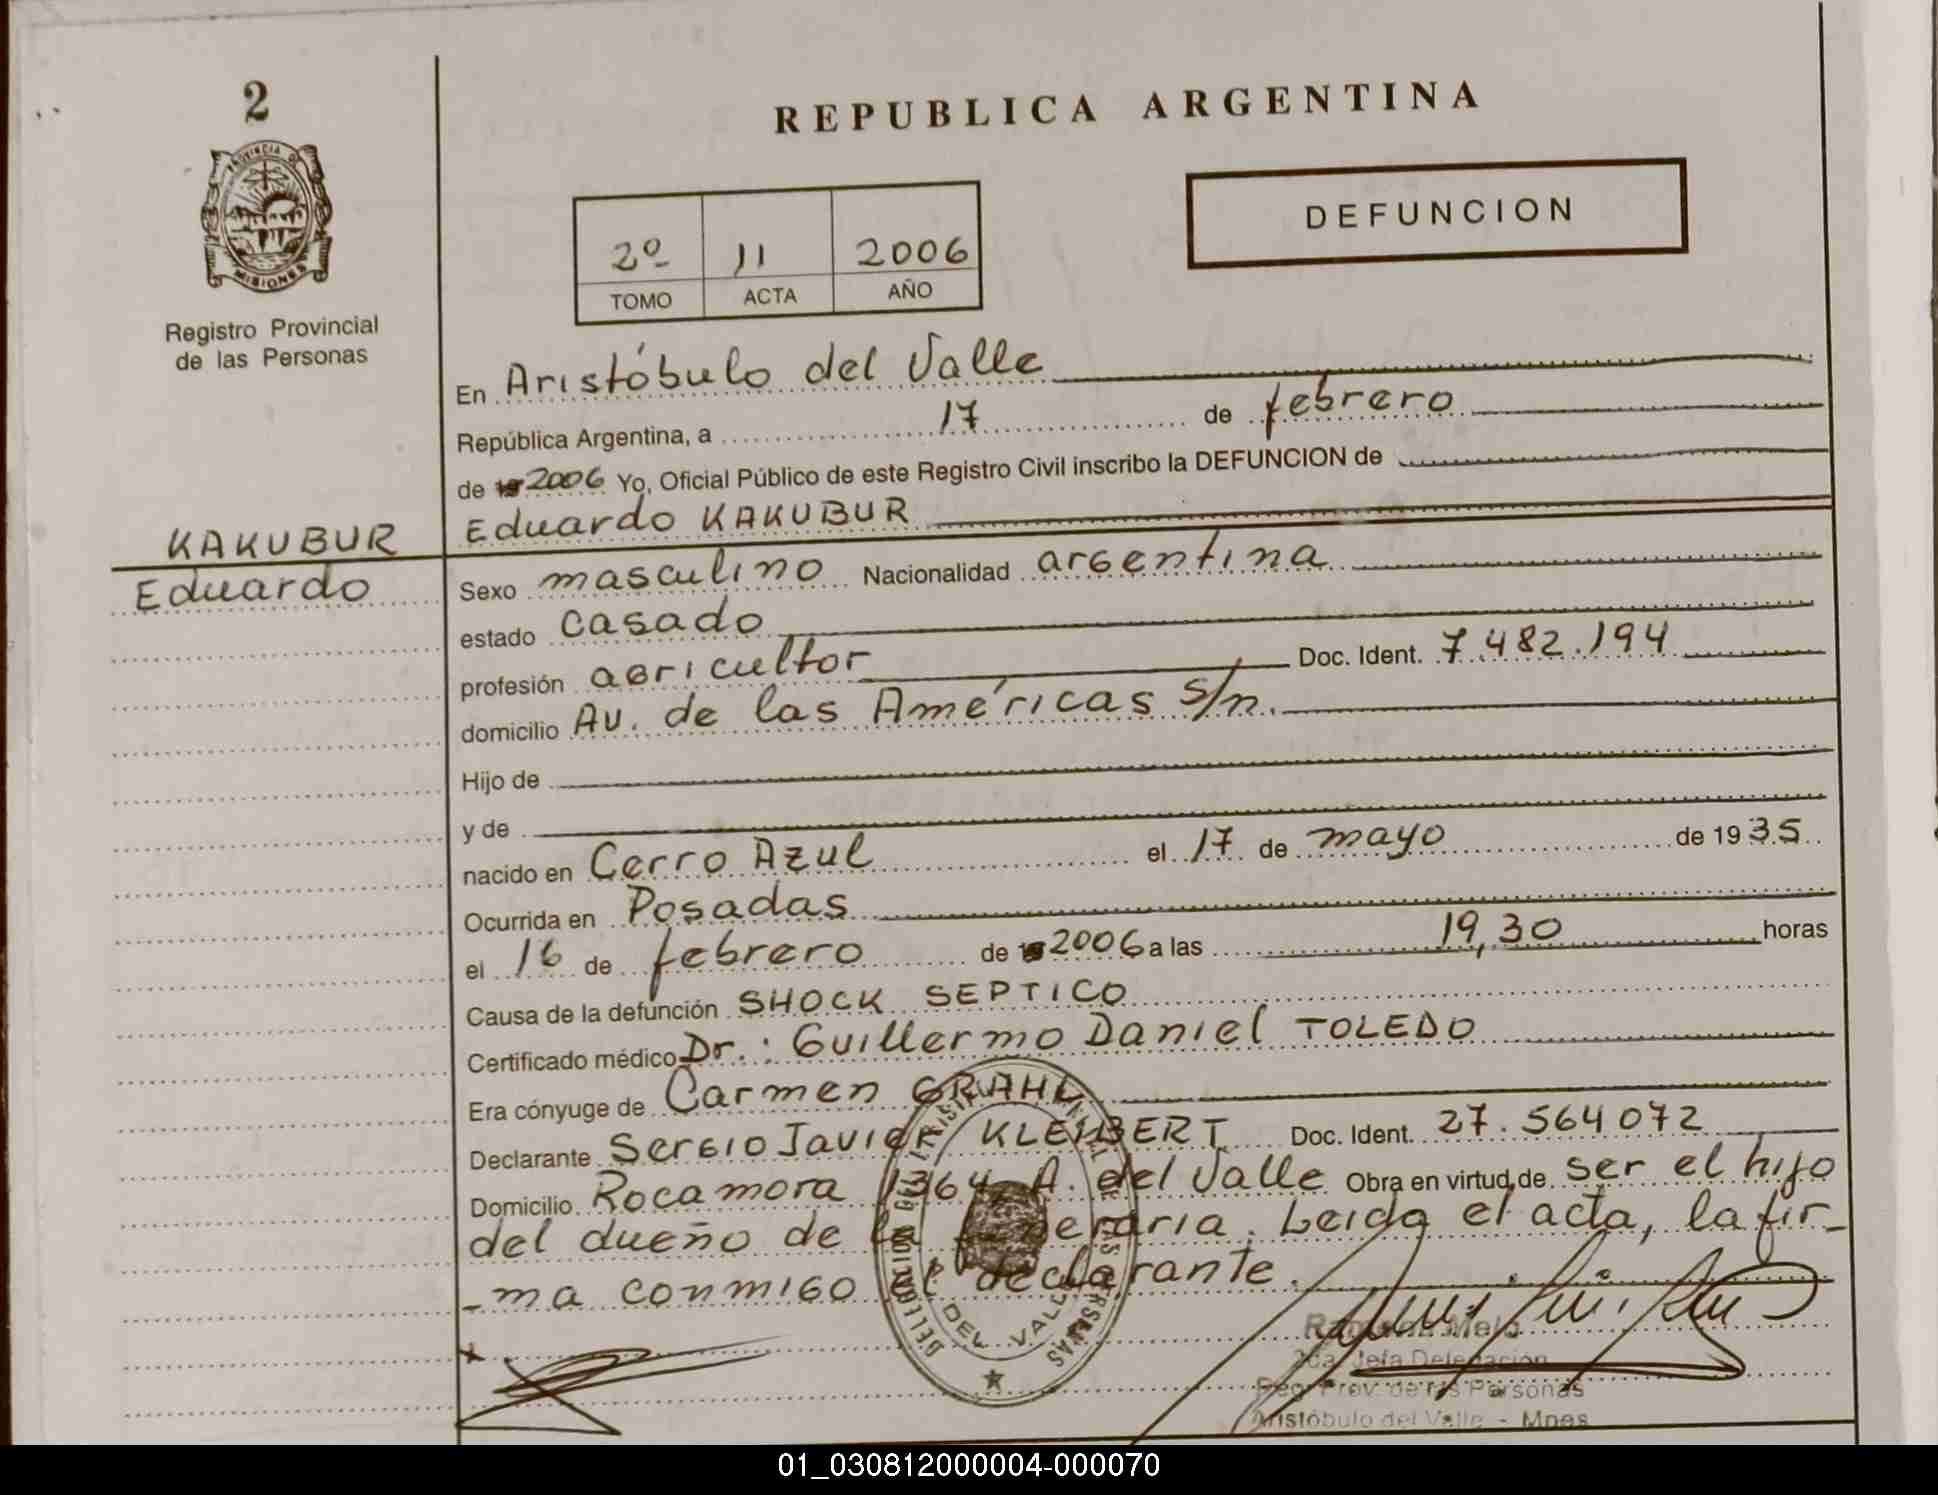 2
PROVINCIA DE
MISIONES
Registro Provincial
de las Personas
REPUBLICA ARGENTINA
DEFUNCION
2º 11 2006
TOMO ACTA AÑO
En Aristóbulo del Valle
República Argentina, a 17 de febrero
de 2006 Yo, Oficial Público de este Registro Civil inscribo la DEFUNCION de
Eduardo KAKUBUR
KAKUBUR
Eduardo
Sexo masculino Nacionalidad argentina
estado casado
profesión agricultor Doc. Ident. 7.482.194
domicilio Av. de las Américas s/n.
Hijo de
y de
nacido en Cerro Azul el 17 de mayo de 1935
Ocurrida en Posadas
el 16 de febrero de 2006 a las 19,30 horas
Causa de la defunción SHOCK SEPTICO
Certificado médico Dr.: Guillermo Daniel TOLEDO
Era cónyuge de Carmen GRAHL
Declarante Sergio Javier KLEIBERT Doc. Ident. 27.564072
Domicilio Rocamora 1364 A. del Valle Obra en virtud de ser el hijo
del dueño de la funeraria. Leida el acta, la fir-
-ma conmigo el declarante.
Ramona Melo
2da. Jefa Delegación
Reg. Prov. de las Personas
Aristóbulo del Valle - Mnes
01_030812000004-000070